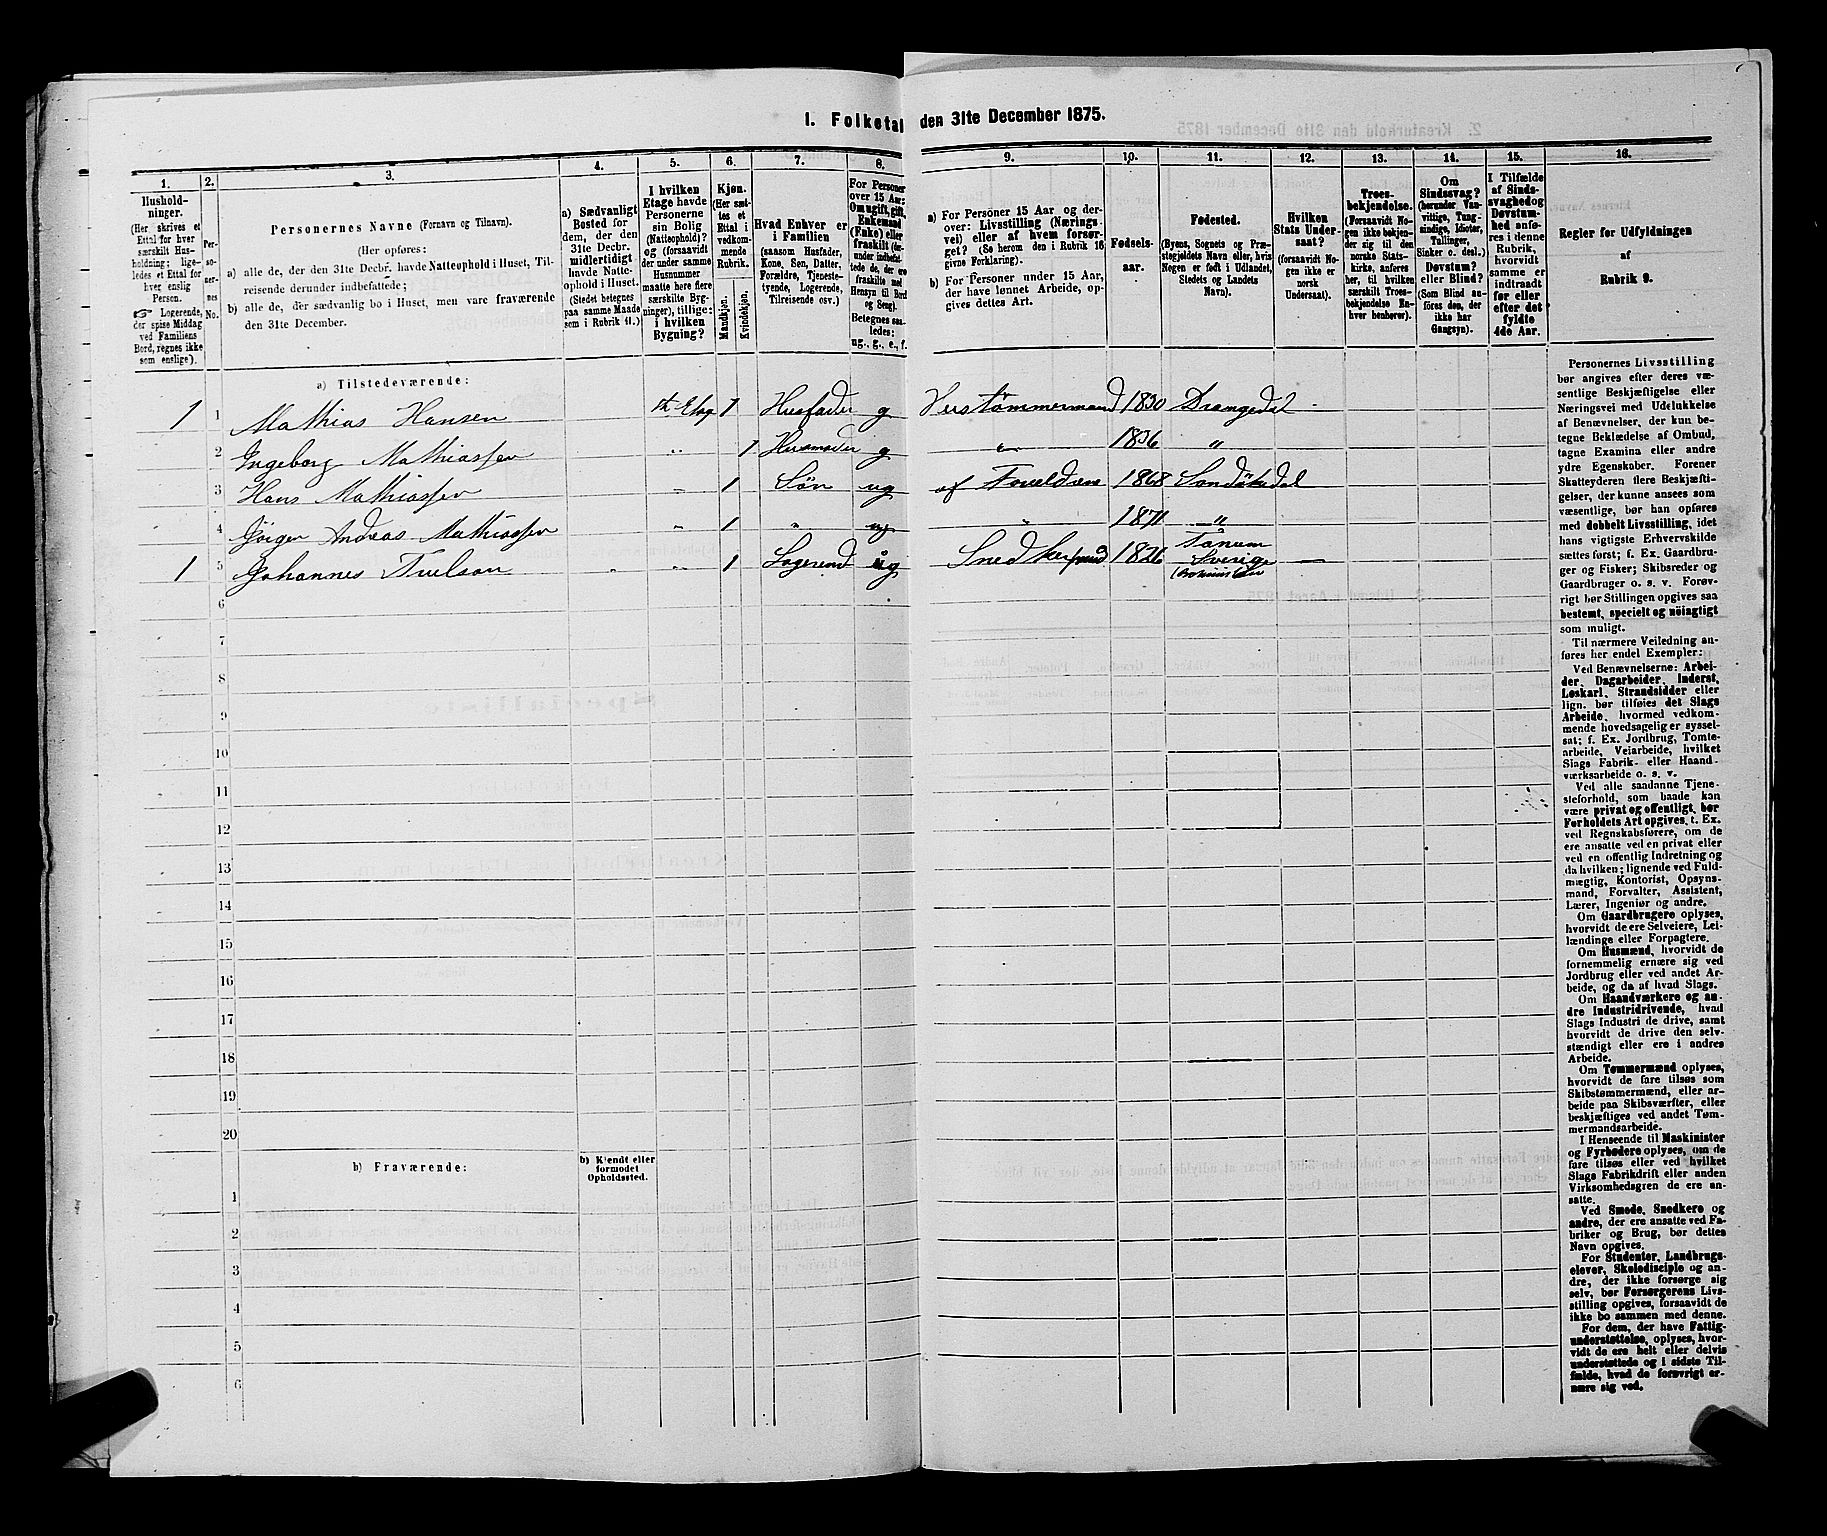 I. Folketal den 31te December 1875.
1. 2. 3. 4. 5. 6. 7. 8. 9. 10. 11. 12. 13. 14. 15. 16.
Hushold-
ninger.
(Her skrives et
Ettal for hver
særskilt Hus-
holdning; lige-
ledes et Ettal for
hver enslig
Person.
☞ Logerende,
der spise Middag
ved Familiens
Bord, regnes ikke
som enslige).
Per-
so-
ner-
nes
No.
Personernes Navne (Fornavn og Tilnavn).
(Her opføres:
a) alle de, der den 31te Decbr. havde Natteophold i Huset, Til-
reisende derunder indbefattede;
b) alle de, der sædvanlig bo i Huset, men vare fraværende
den 31te December.
a) Sædvanligt
Bosted for
dem, der den
31te Decbr.
midlertidigt
havde Natte-
ophold i Huset.
(Stedet betegnes
paa samme Maade
som i Rubrik 11.)
I hvilken
Etage havde
Personerne
sin Bolig
(Natteophold)?
og (forsaavidt
der under samme
Husnummer
maatte here flere
særskilte Byg-
ninger), tillige:
i hvilken
Bygning?
Kjøn.
(Her sæt-
tes et
Ettal i
vedkom-
mende
Rubrik.
Mandkjøn.
Kvindekjøn.
Hvad Enhver er
i Familien
(saasom Husfader,
Kone, Søn, Datter,
Forældre, Tjeneste-
tyende, Logerende,
Tilreisende osv.)
For Personer
over 15 Aar:
Om ugift, gift,
Enkemand
(Enke) eller
fraskilt (der-
under indbefat-
tede de, der ere
fraskilte med
Hensyn til Bord
og Seng).
Betegnes saa-
ledes:
ug., g., e., f.
a) For Personer 15 Aar og der-
over: Livsstilling (Nærings-
vei) eller af hvem forsør-
get? (Se herom den i Rubrik 16
givne Forklaring).
b) For Personer under 15 Aar,
der have lønnet Arbeide, op-
gives dettes Art.
Fødsels-
aar.
Fødested.
(Byens, Sognets og Præ-
stegjeldets Navn eller, hvis
Nogen er født i Udlandet,
Stedets og Landets
Navn).
Hvilken
Stats Under-
saat?
(forsaavidt No-
gen ikke er
norsk
Undersaat).
Troes-
bekjendelse.
(Forsaavidt No-
gen ikke bekjen-
der sig til den
norske Stats-
kirke, anføres
her, til hvilken
særskilt Troes-
bekjendelse En-
hver henhører).
Om
Sindssvag?
(herunder Van-
vittige, Tung-
sindige, Idioter,
Tullinger,
Sinker o. desl.)
Døvstum?
eller Blind?
(Som Blind an-
føres den, der
ikke har
Gangsyn).
I Tilfælde
af Sinds-
svaghed og
Døvstum-
hed anfø-
res i denne
Rubrik,
hvorvidt
samme er
indtraadt
før eller
efter det
fyldte
4de Aar.
Regler for Udfyldningen
af
Rubrik 9.
a) Tilstedeværende:
1 1 Mathias Hansen Etag 1 Husfader g Tømmermand 1830 Drangedal -
2 Ingeborg Mathiassen „ 1 Husmoder g „ 1836 „
3 Hans Mathiassen „ 1 Søn ug af Forældrene 1868 Sandøkedal
4 Jörgen Andreas Mathiassen „ 1 „ ug „ 1871 „
1 5 Johannes „ „ 1 Logerend ug Snedker 1826 Tanum Sverige —
6
7
8
9
10
11
12
13
14
15
16
17
18
19
20
b) Fraværende:
b) Kjendt eller
formodet
Opholdssted.
1
2
3
4
5
6
Personernes Livsstilling
bør angives efter deres væ-
sentlige Beskjæftigelse eller
Næringsvei med Udelukkelse
af Benævnelser, der kun be-
tegne Beklædelse af Ombud,
tagne Examina eller andre
ydre Egenskaber. Forener
Skatteyderen flere Beskjæfti-
gelser, der kunne ansees som
væsentlige, bør han opføres
med dobbelt Livsstilling, idet
hans vigtigste Erhvervskilde
sættes først; f. Ex. Gaardbru-
ger og Fisker; Skibsreder og
Gaardbruger o. s. v. Forøv-
rigt bør Stillingen opgives saa
bestemt, specielt og nöiagtigt
som muligt.
Til nærmere Veiledning an-
føres her endel Exempler:
Ved Benævnelserne: Arbei-
der, Dagarbeider, Inderst,
Løskarl, Strandsidder eller
lign. bør tilføies det Slags
Arbeide, hvormed vedkom-
mende hovedsagelig er syssel-
sat; f. Ex. Jordbrug, Tomte-
arbeide, Veiarbeide, hvilket
Slags Fabrik- eller Haand-
værksarbeide o. s. v.
Ved alle saadanne Tjene-
steforhold, som baade kan
være privat og offentligt, bør
Forholdets Art opgives, t. Ex.
ved Regnskabsførere, om de
ere ansatte ved en privat eller
ved en offentlig Indretning og
da hvilken; lignende ved Fuld-
mægtig, Kontorist, Opsyns-
mand, Forvalter, Assistent,
Lærer, Ingeniør og andre.
Om Gaardbrugere oplyses,
hvorvidt de ere Selveiere, Lei-
lændinge eller Forpagtere.
Om Husmænd, hvorvidt de
fornemmelig ernære sig ved
Jordbrug eller ved andet Ar-
beide, og da af hvad Slags.
Om Haandværkere og an-
dre Industridrivende, hvad
Slags Industri de drive, samt
hvorvidt de drive den selv-
stændigt eller ere i andres
Arbeide.
Om Tømmermænd oplyses,
hvorvidt de fare tilsøs som
Skibstømmermænd, eller ar-
beide paa Skibsværfter, eller
beskjæftiges ved andet Tøm-
mermandsarbeide.
I Henseende til Maskinister
og Fyrbødere oplyses, om de
fare tilsøs eller ved hvilket
Slags Fabrikdrift eller anden
Virksomhedsgren de ere an-
satte.
Ved Smede, Snedkere og
andre, der ere ansatte ved Fa-
briker og Brug, bør dettes
Navn opgives.
For Studenter, Landbrugs-
elever, Skoledisciple og an-
dre, der ikke forsørge sig
selv, bør Forsørgerens Livs-
stilling opgives, forsaavidt de
ikke bo sammen med denne.
For dem, der have Fattig-
understøttelse, oplyses, hvor-
vidt de ere helt eller delvis
understøttede og i sidste Til-
fælde, hvad de forøvrigt er-
nære sig ved.